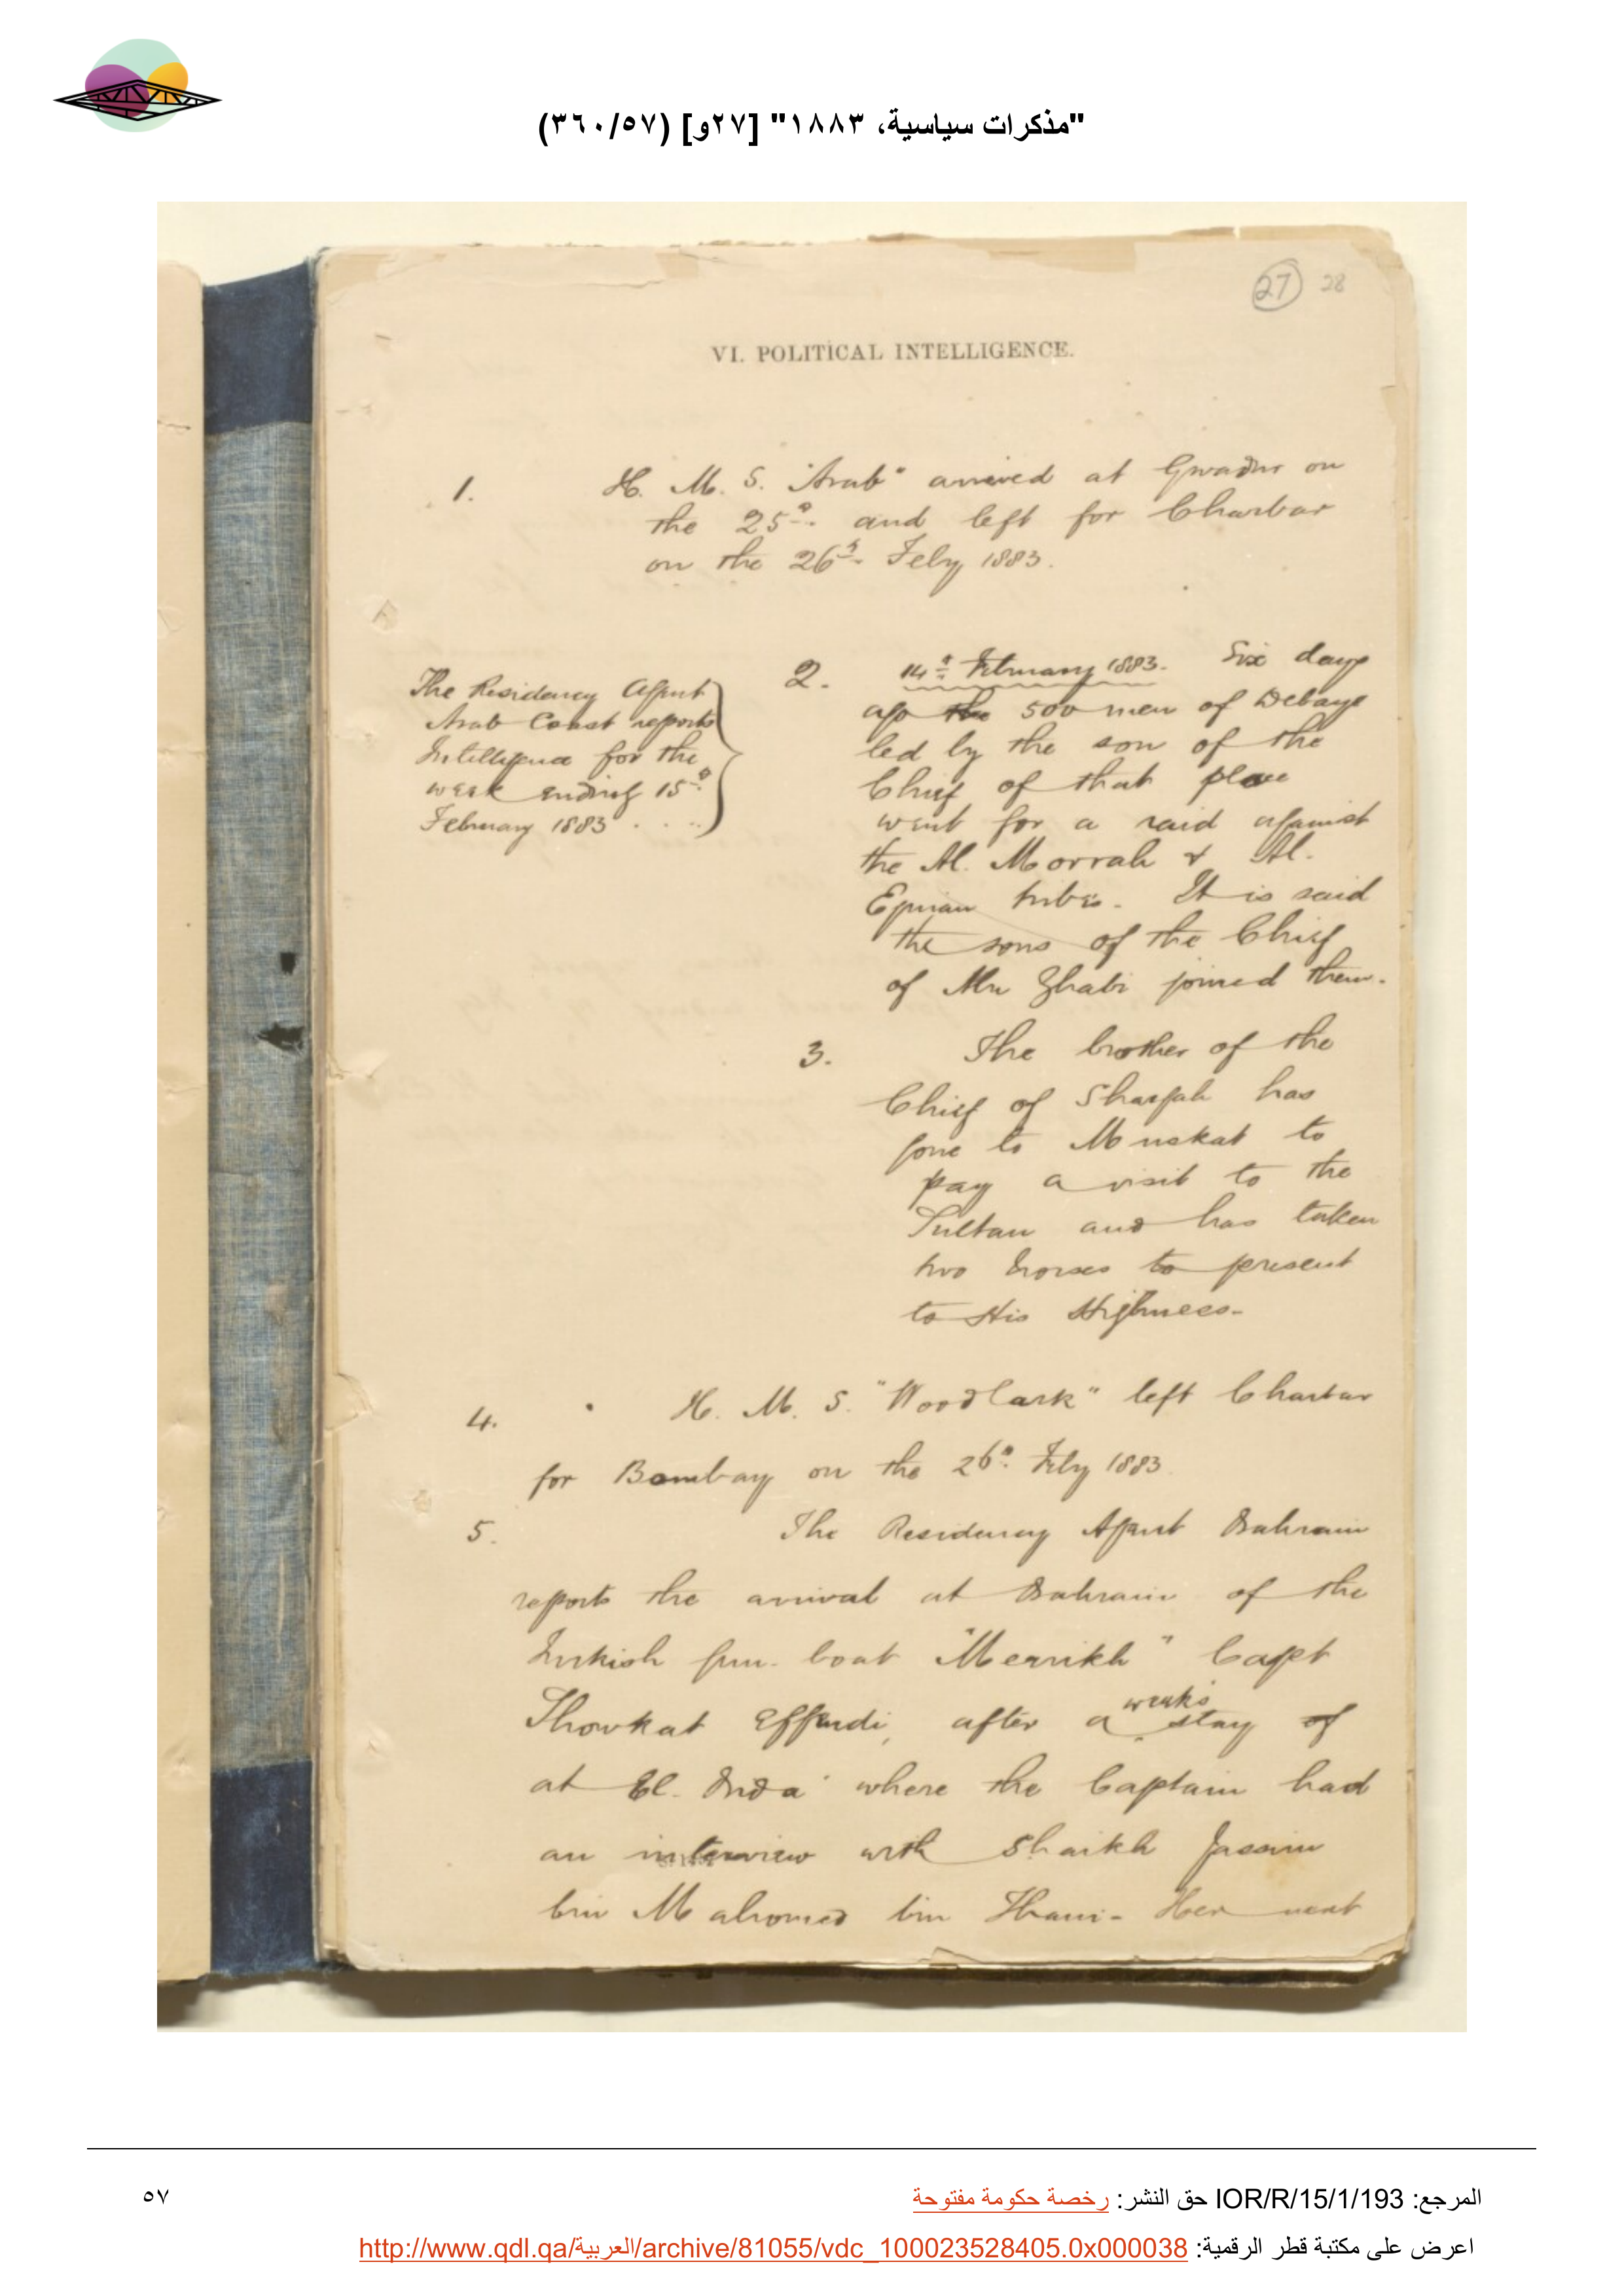 "مذكرات سياسية، ١٨٨٣" [٢٧و] (٣٦٠/٥٧)
27 28
VI. POLITICAL INTELLIGENCE.
1. H. M. S. "Arab" arrived at Gwadur on
the 25th. and left for Charbar
on the 26th. Feby 1883.
The Residency Agent
Arab Coast reports
Intelligence for the
week ending 15th.
February 1883 . . ..
2. 14th February 1883. Six days
ago the 500 men of Debaye
led by the son of the
Chief of that place
went for a raid against
the Al. Morrah & Al.
tribes. It is said
the sons of the Chief
of Abu Zhabi joined them.
3. The brother of the
Chief of Shargah has
gone to Muskat to
pay a visit to the
Sultan and has taken
two horses to present
to His Highness-
4. H. M. S. "Woodlark" left Charbar
for Bombay on the 26th. Feby 1883.
5. The Residency Agent Bahrain
reports the arrival at Bahrain of the
Turkish gun-boat "Merrikh" Capt
Showkat Effendi, after a week's stay of
at El. Bida' where the Captain had
an interview with Shaikh Jassim
bin Mahomed bin Thani- Her next
المرجع: IOR/R/15/1/193 حق النشر: رخصة حكومة مفتوحة
٥٧
اعرض على مكتبة قطر الرقمية: http://www.qdl.qa/العربية/archive/81055/vdc_100023528405.0x000038